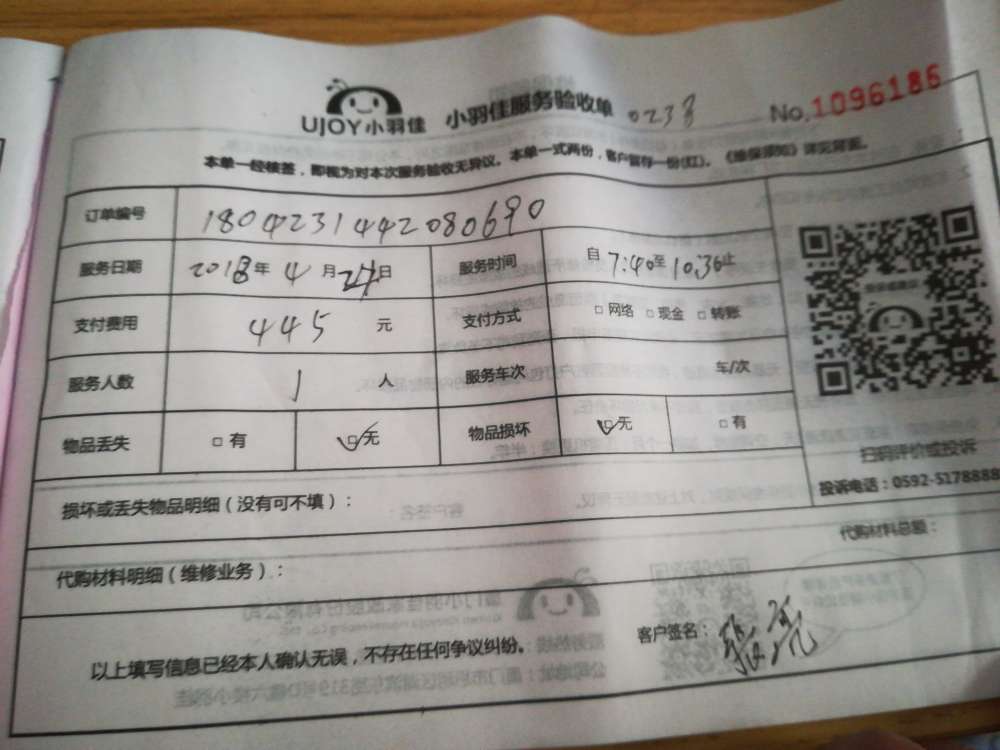 UJOY小羽佳 小羽佳服务验收单 0238 No.1096186
本单一经核签，即视为对本次服务验收无异议。本单一式两份，客户留存一份(红)。《维保须知》详见背面。
订单编号 1804231442080690
服务日期 2018年4月24日 服务时间 自7:40至10:30止
支付费用 445 元 支付方式 □网络 □现金 □转账
服务人数 1 人 服务车次 车/次
物品丢失 □有 ☑无 物品损坏 ☑无 □有
扫码评价或投诉
损坏或丢失物品明细（没有可不填）： 投诉电话：0592-5178888
代购材料总额：
代购材料明细（维修业务）：
客户签名：
以上填写信息已经本人确认无误，不存在任何争议纠纷。